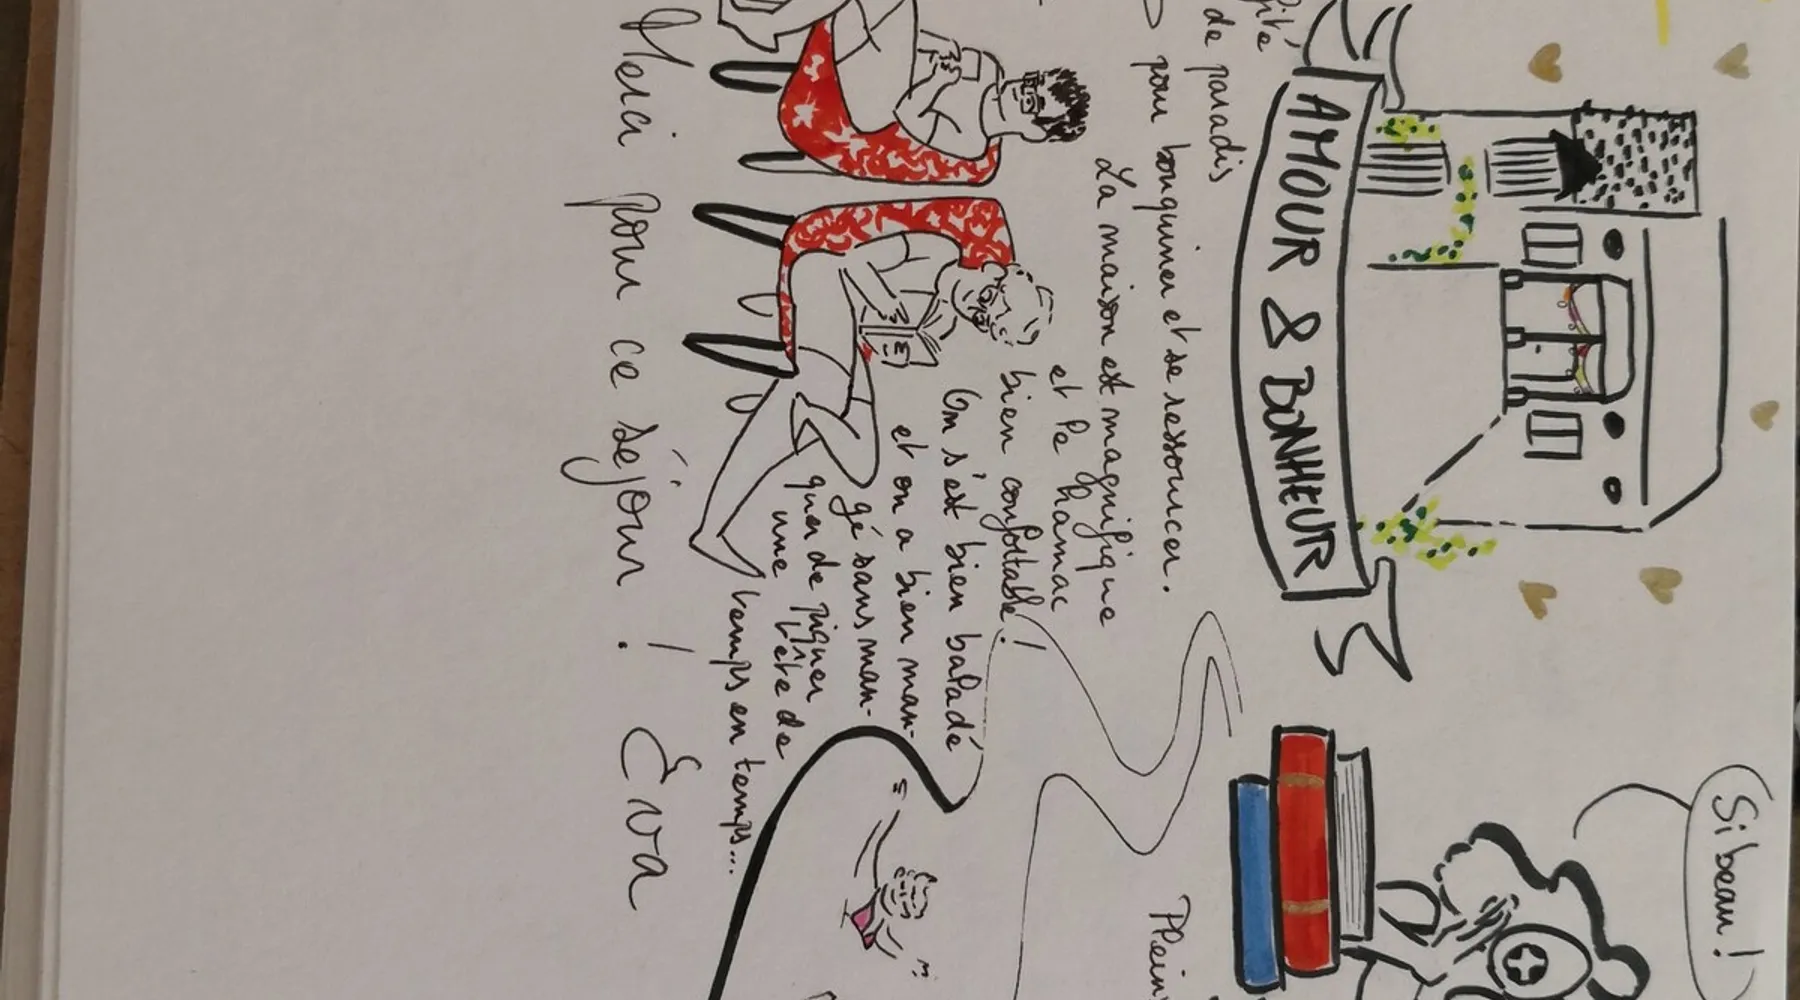 Si beau !
AMOUR & BONHEUR
de paradis
pour bouquiner et se ressourcer.
La maison est magnifique
et le hamac
bien confortable !
On s'est bien baladé
et on a bien man-
gé sans man-
quer de piquer
une tête de
temps en temps...
Merci pour ce séjour ! Eva